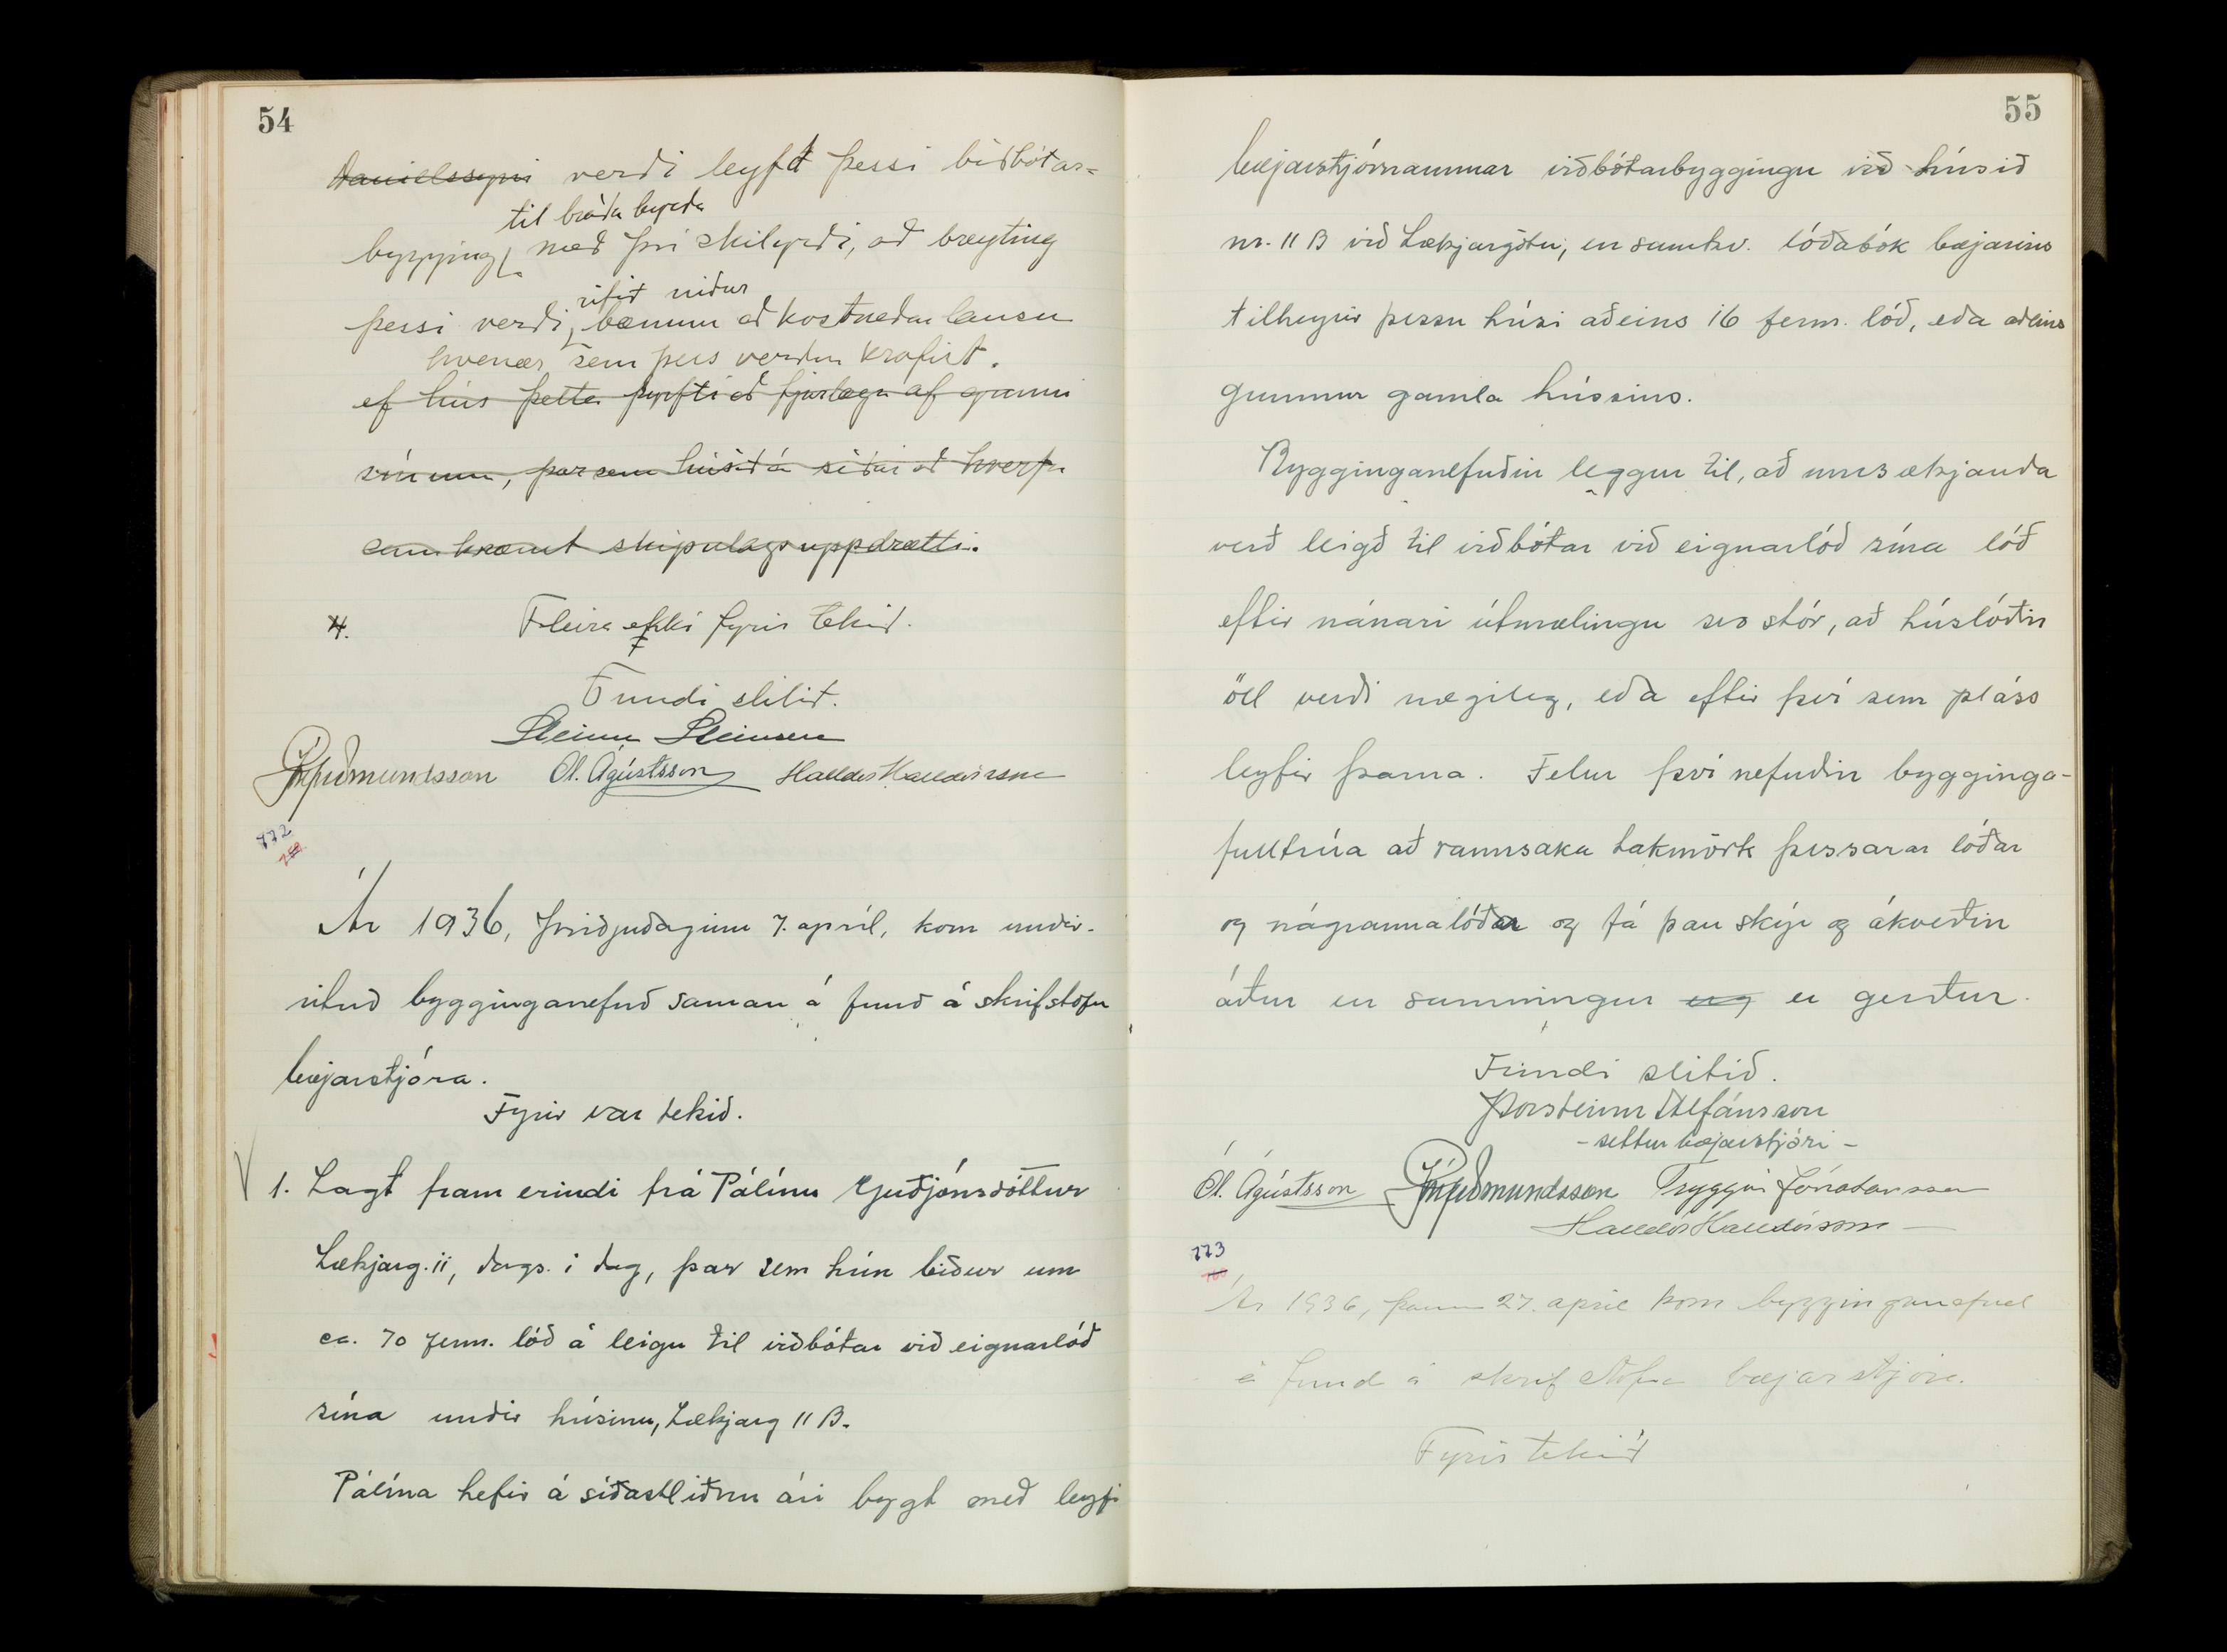 54
Daníelssyni verði leyfð þessi viðbótar-
til bráðabyrgða
bygging, með því skilyrði, að breyting
rifið niður
þessi verði, bænum að kostnaðarlausu
hvenær sem þess verður krafist.
ef hús þetta þyrfti að fjarlægja af grunni
sínum, þar sem húsið á síðar að hverfa
samkvæmt skipulagsuppdrætti.
4. Fleira ekki fyrir tekið.
Fundi slitið.
Steinn Steinsen
Ól. Ágústsson Halldór Halldórsson
772
Ár 1936, þriðjudaginn 7. apríl, kom undir-
rituð bygginganefnd saman á fund á skrifstofu
bæjarstjóra.
Fyrir var tekið.
V 1. Lagt fram erindi frá Pálínu Guðjónsdóttur
Lækjarg. 11, dags. í dag, þar sem hún biður um
ca. 70 ferm. lóð á leigu til viðbótar við eignarlóð
sína undir húsinu, Lækjarg 11 B.
Pálína hefir á síðastliðnu ári bygt með leyfi
55
bæjarstjórnarinnar viðbótarbyggingu við húsið
nr. 11 B við Lækjargötu, en samkv. lóðabók bæjarins
tilheyrir þessu húsi aðeins 16 ferm. lóð, eða aðeins
grunnur gamla hússins.
Bygginganefndin leggur til, að umsækjanda
verð leigð til viðbótar við eignarlóð sína lóð
eftir nánari útmælingu svo stór, að húslóðin
öll verði nægileg, eða eftir því sem pláss
leyfir þarna. Felur því nefndin bygginga-
fulltrúa að rannsaka takmörk þessarar lóðar
og nágrannalóðar og fá þau skýr og ákveðin
áður en samningur er gerður.
Fundi slitið.
Þorsteinn Stefánsson
- settur bæjarstjóri -
Ól. Ágústsson Tryggvi Jónatansson
Halldór Halldórsson
773
Ár 1936, þann 27. apríl kom bygginganefnd
á fund á skrifstofu bæjarstjóra.
Fyrir tekið